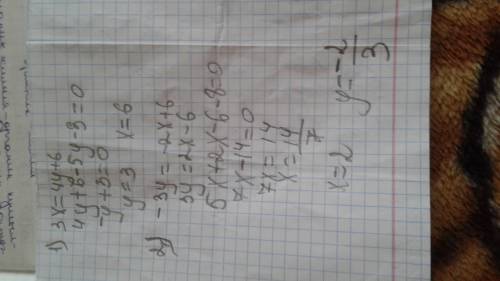 1) 3x=4y+6
4y+6-5y-3=0
-y+3=0
y=3 x=6
2) -3y=-2x+6
3y=2x-6
5x+2x-6-8=0
7x-14=0
7x=14
x=14/7
x=2 y=-2/3